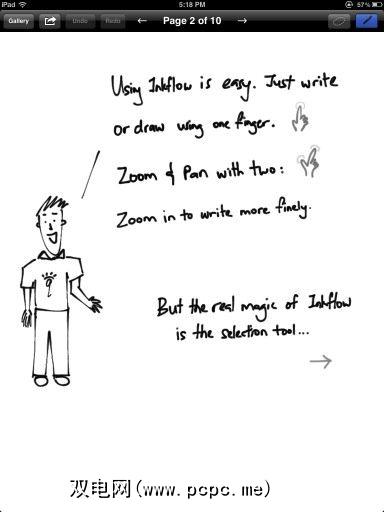 iPad 5:18 PM 57%
Gallery Undo Redo ← Page 2 of 10 →
Using Inkflow is easy. Just write
or draw using one finger.
Zoom & Pan with two:
Zoom in to write more finely.
But the real magic of Inkflow
is the selection tool...
→
双电网(www.pcpc.me)